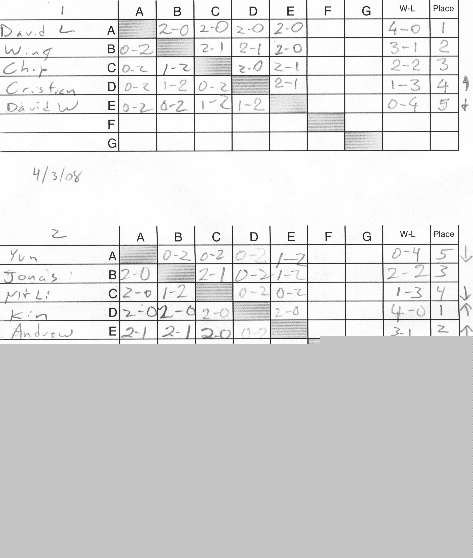 1 A B C D E F G W-L Place
David L A 2-0 2-0 2-0 2-0 4-0 1
Wing B 0-2 2-1 2-1 2-0 3-1 2
Chip C 0-2 1-2 2-0 2-1 2-2 3
Cristian D 0-2 1-2 0-2 2-1 1-3 4 ↑
David W E 0-2 0-2 1-2 1-2 0-4 5 ↓
F
G
4/3/08
2 A B C D E F G W-L Place
Yun A 0-2 0-2 0-2 1-2 0-4 5 ↓
Jonas B 2-0 2-1 0-2 1-2 2-2 3
C 2-0 1-2 0-2 0-2 1-3 4 ↓
Kin D 2-0 2-0 2-0 2-0 4-0 1 ↑
Andrew E 2-1 2-1 2-0 0-2 3-1 2 ↑